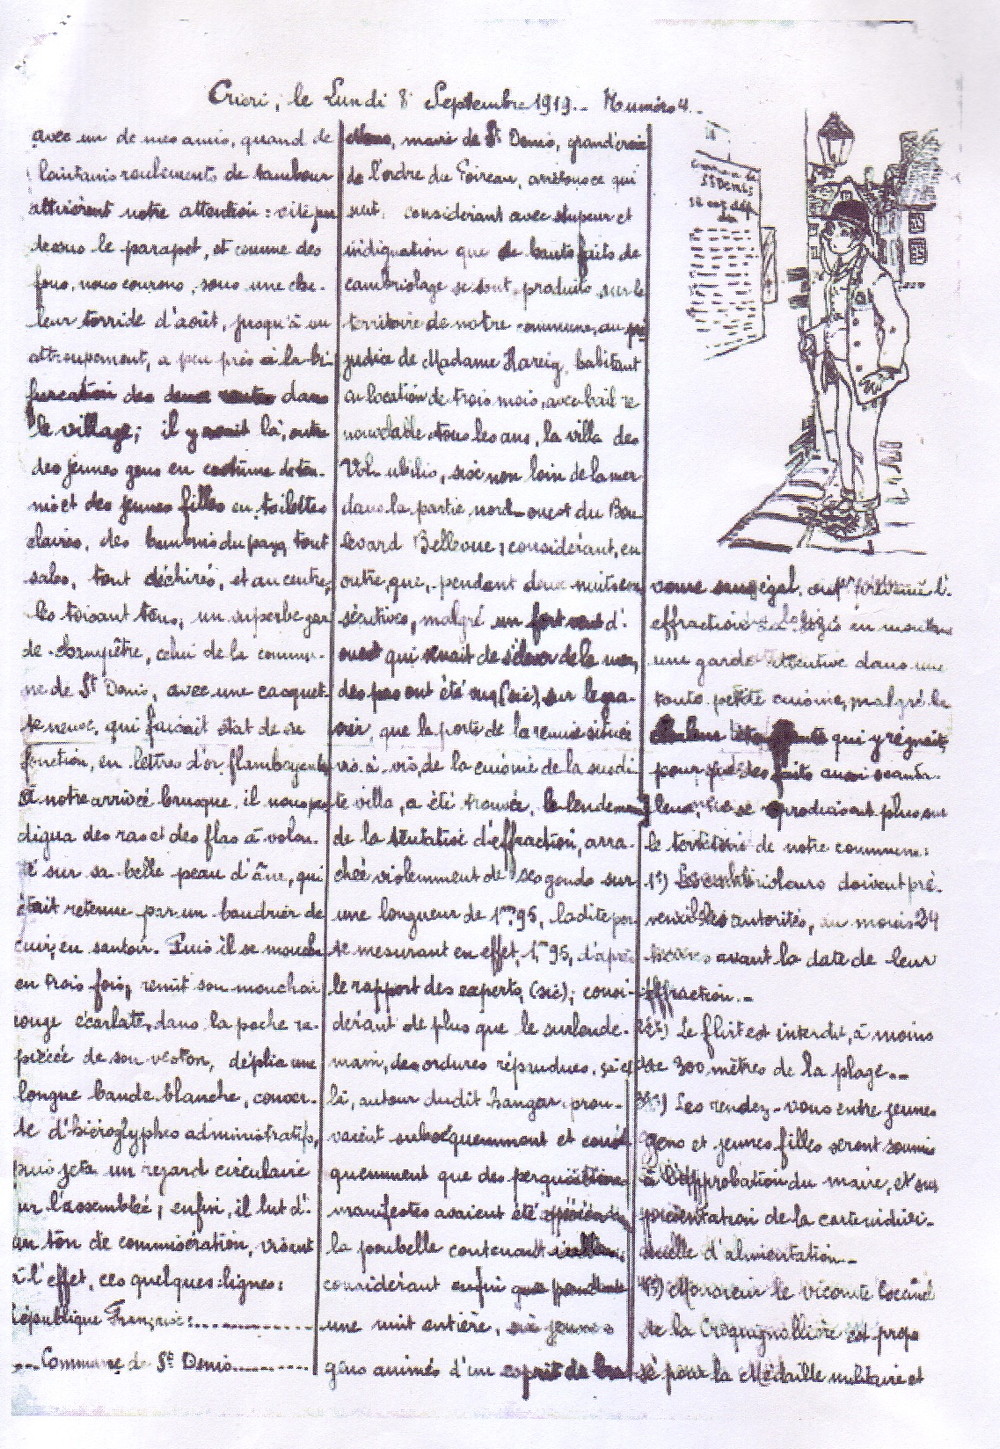 Cricri, le Lundi 8 Septembre 1919.. Numéro 4..
avec un de mes amis, quand de
lointains roulements de tambour
attirèrent notre attention : vite par
dessus le parapet, et comme des
fous, nous courons, sous une cha-
leur torride d'août, jusqu'à un
attroupement, a peu près à la bi-
furcation des deux routes dans
le village; il y avait là, outre
des jeunes gens en costume de ten-
nis et des jeunes filles en toilettes
claires, des bambins du pays, tout
sales, tout déchirés, et au centre,
les toisant tous, un superbe gar
de-champêtre, celui de la commu-
ne de St Denis, avec une casquet-
te neuve, qui faisait état de sa
fonction, en lettres d'or flamboyantes
A notre arrivée brusque, il nous pro
digua des ras et des flas à volon-
té sur sa belle peau d'âne, qui
était retenue par un baudrier de
cuir, en sautoir. Puis il se moucha
en trois fois, remit son mouchoir
rouge écarlate, dans la poche ra-
piécée de son veston, déplia une
longue bande blanche, couver-
te d'hiéroglyphes administratifs,
puis jeta un regard circulaire
sur l'assemblée ; enfin, il lut d'
un ton de commisération, visant
à l'effet, ces quelques lignes :
République Française:..............
.... Commune de St Denis..........
Nous, maire de St Denis, grand'croix
de l'ordre du Poireau, arrêtons ce qui
suit: considérant avec stupeur et
indignation que de hauts faits de
cambriolage se sont produits sur le
territoire de notre commune, au pré
judice de Madame Hareig, habitant
en location de trois mois, avec bail re
nouvelable tous les ans, la villa des
Volubilis, sise non loin de la mer
dans la partie nord-ouest du Bou
levard Bellevue; considérant, en
outre, que, pendant deux nuits con
sécutives, malgré un fort vent d'
ouest qui venait de s'élever de la mer,
des pas ont été vus (sic) sur le gra-
vier, que la porte de la remise située
vis-à-vis, de la cuisine de la susdi
te villa, a été trouvée, le lendemain
de la tentative d'effraction, arra-
chée violemment de ses gonds sur
une longueur de 1m95, ladite por
te mesurant en effet, 1m95, d'après
le rapport des experts, (sic); consi-
dérant de plus que le surlende-
main, des ordures répandues, çà et
là, autour dudit hangar, prou-
vaient subséquemment et consé
quemment que des perquisitions
manifestes avaient été
la poubelle contenant
considérant enfin que pendant
une nuit entière, six jeunes
gens animés d'un esprit de bra-
voure sans égal, ont prévenu l'
effraction
une garde attentive dans une
toute petite cuisine, malgré la
chaleur qui y régnait,
pour que des faits aussi scanda-
leux, ne se produisent plus sur
le territoire de notre commune:
1°) Les cambrioleurs doivent pré-
venir les autorités, au moins 24
heures avant la date de leur
effraction..
2°) Le flirt est interdit, à moins
de 300 mètres de la plage...
3°) Les rendez-vous entre jeunes
gens et jeunes filles seront soumis
à l'approbation du maire, et sur
présentation de la carte indivi-
duelle d'alimentation...
4°) Monsieur le vicomte
de la Croquignollière est propo
sé pour la Médaille militaire et
St Denis